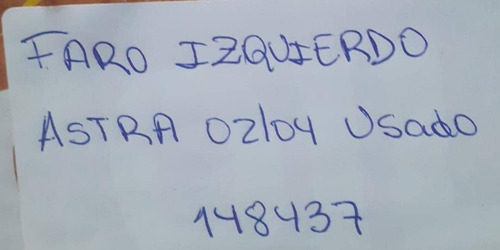 FARO IZQUIERDO
ASTRA 02/04 Usado
148437